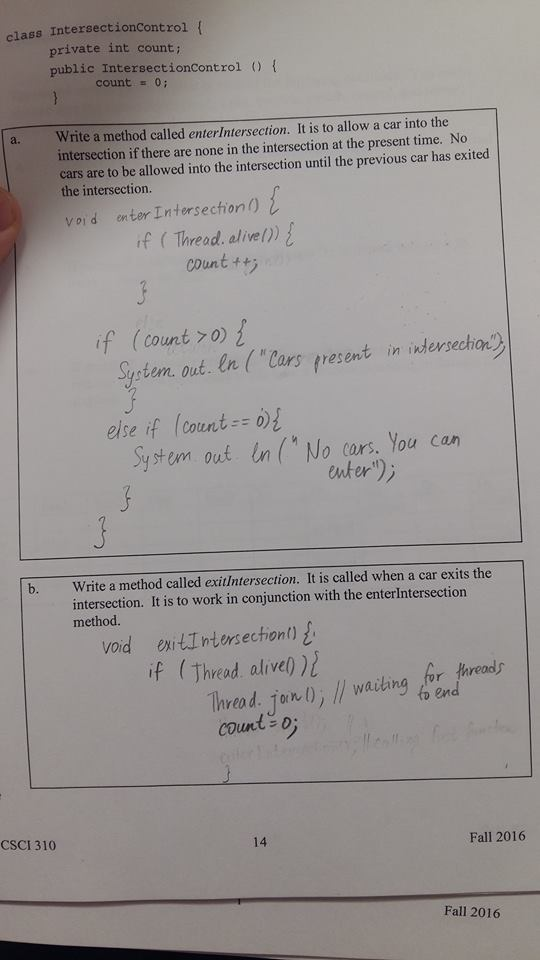 class IntersectionControl {
private int count;
public IntersectionControl () {
count = 0;
}
a. Write a method called enterIntersection. It is to allow a car into the
intersection if there are none in the intersection at the present time. No
cars are to be allowed into the intersection until the previous car has exited
the intersection.
void enterIntersection() {
if (Thread.alive()) {
count ++;
}
if (count > 0) {
System.out.ln ("Cars present in intersection");
}
else if (count == 0){
System.out.ln (" No cars. You can
enter");
}
}
b. Write a method called exitIntersection. It is called when a car exits the
intersection. It is to work in conjunction with the enterIntersection
method.
void exitIntersection() {
if (Thread.alive()){
Thread.join(); // waiting for threads
to end
count = 0;
}
CSCI 310 14 Fall 2016
Fall 2016